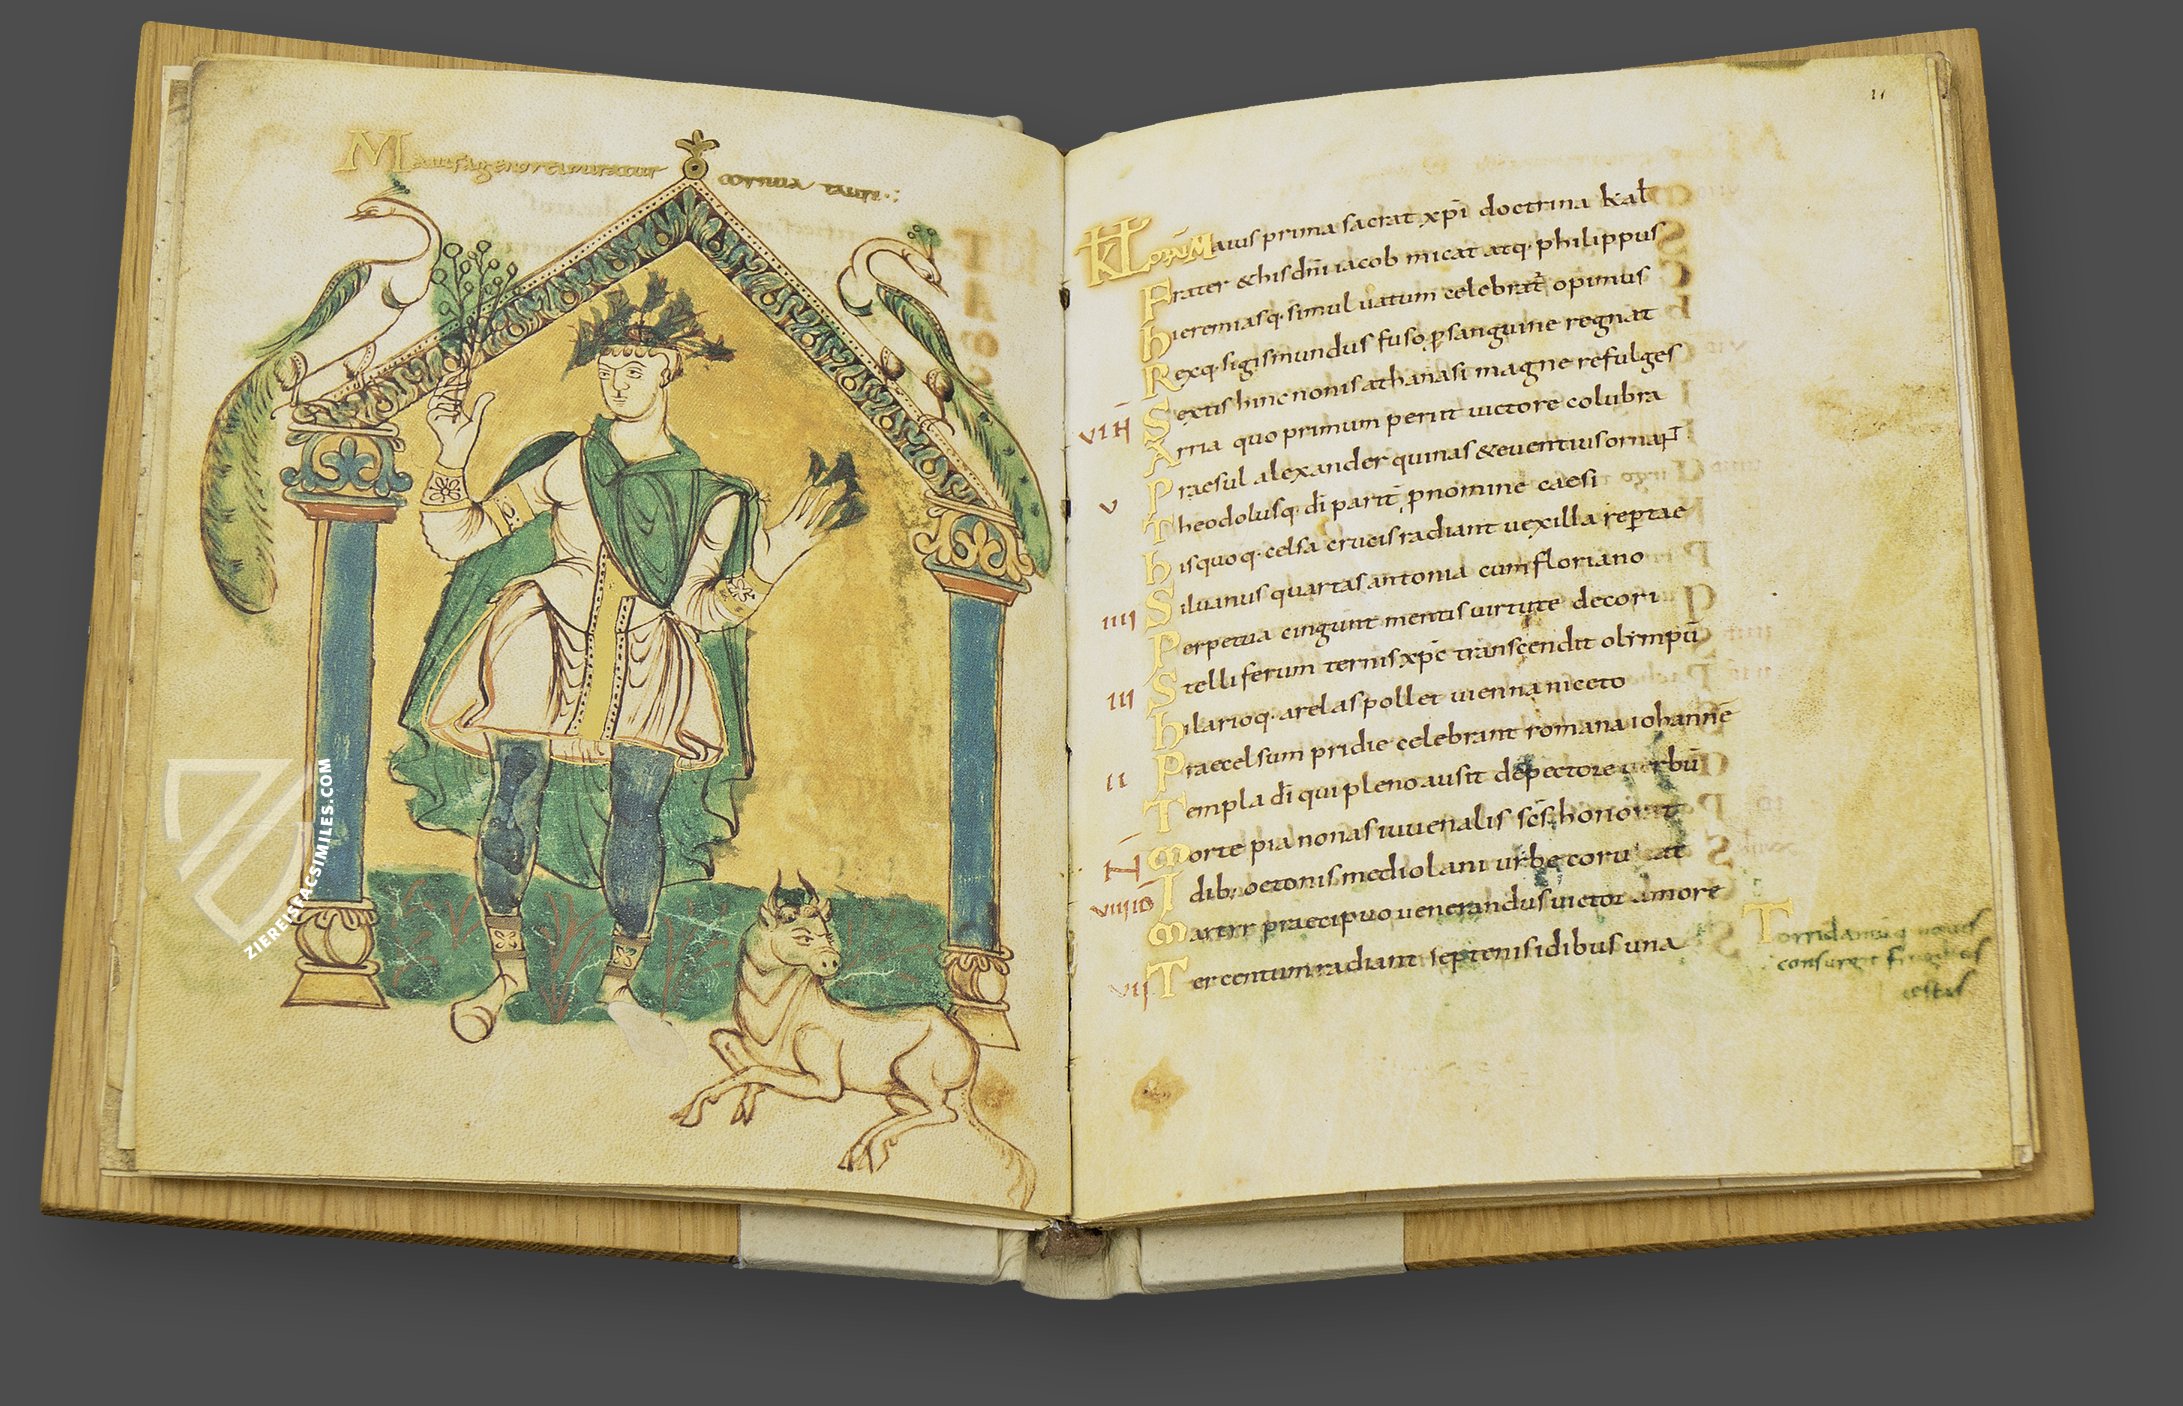 Maius agenorei miratur cornua tauri.:
ZIEREISFACSIMILES.COM
11
KL ORUM Maius prima sacrat xpi doctrina kal
Frater & his dni iacob micat atq· philippus
hieremiasq· simul uatum celebrat opimus
Rexq· sigismundus fuso p sanguine regnat
VIII Sextis hinc nonis athanasi magne refulges
Arria quo primum periit uictore colubra
V Praesul alexander quinas & euentius ornat
Theodolusq· di parti pnomine caesi
hisquoq· celsa crucis radiant uexilla reptae
IIII Siluanus quartas antonia cum floriano
Perpetua cingunt mentis uirtute decori
III Stelliferum ternis xpc transcendit olimpū
hilarioq· arelas pollet uienna niceto
II Praecelsum pridie celebrant romana iohannē
Templa di qui pleno ausit de pectore uerbū
N Morte pia nonas iuuenalis scs honorat
VIIII ID Idib; octonis mediolani urbe coruscat
Martyr praecipuo uenerandus uictor amore
VII Tercentum radiant septenis idibus una
Torridaniūq nouus
consurgit frugibus
estas